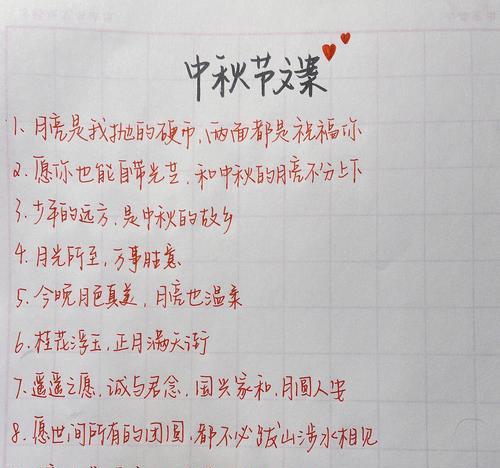 中秋节文案
1、月亮是我抛的硬币,两面都是祝福你
2、愿你也能自带光芒,和中秋的月亮不分上下
3、少年的远方,是中秋的故乡
4、月光所至,万事胜意
5、今晚月色真美,月亮也温柔
6、桂花浮玉,正月满天街
7、遥遥之愿,诚与君念,国兴家和,月圆人安
8、愿世间所有的团圆,都不必跋山涉水相见